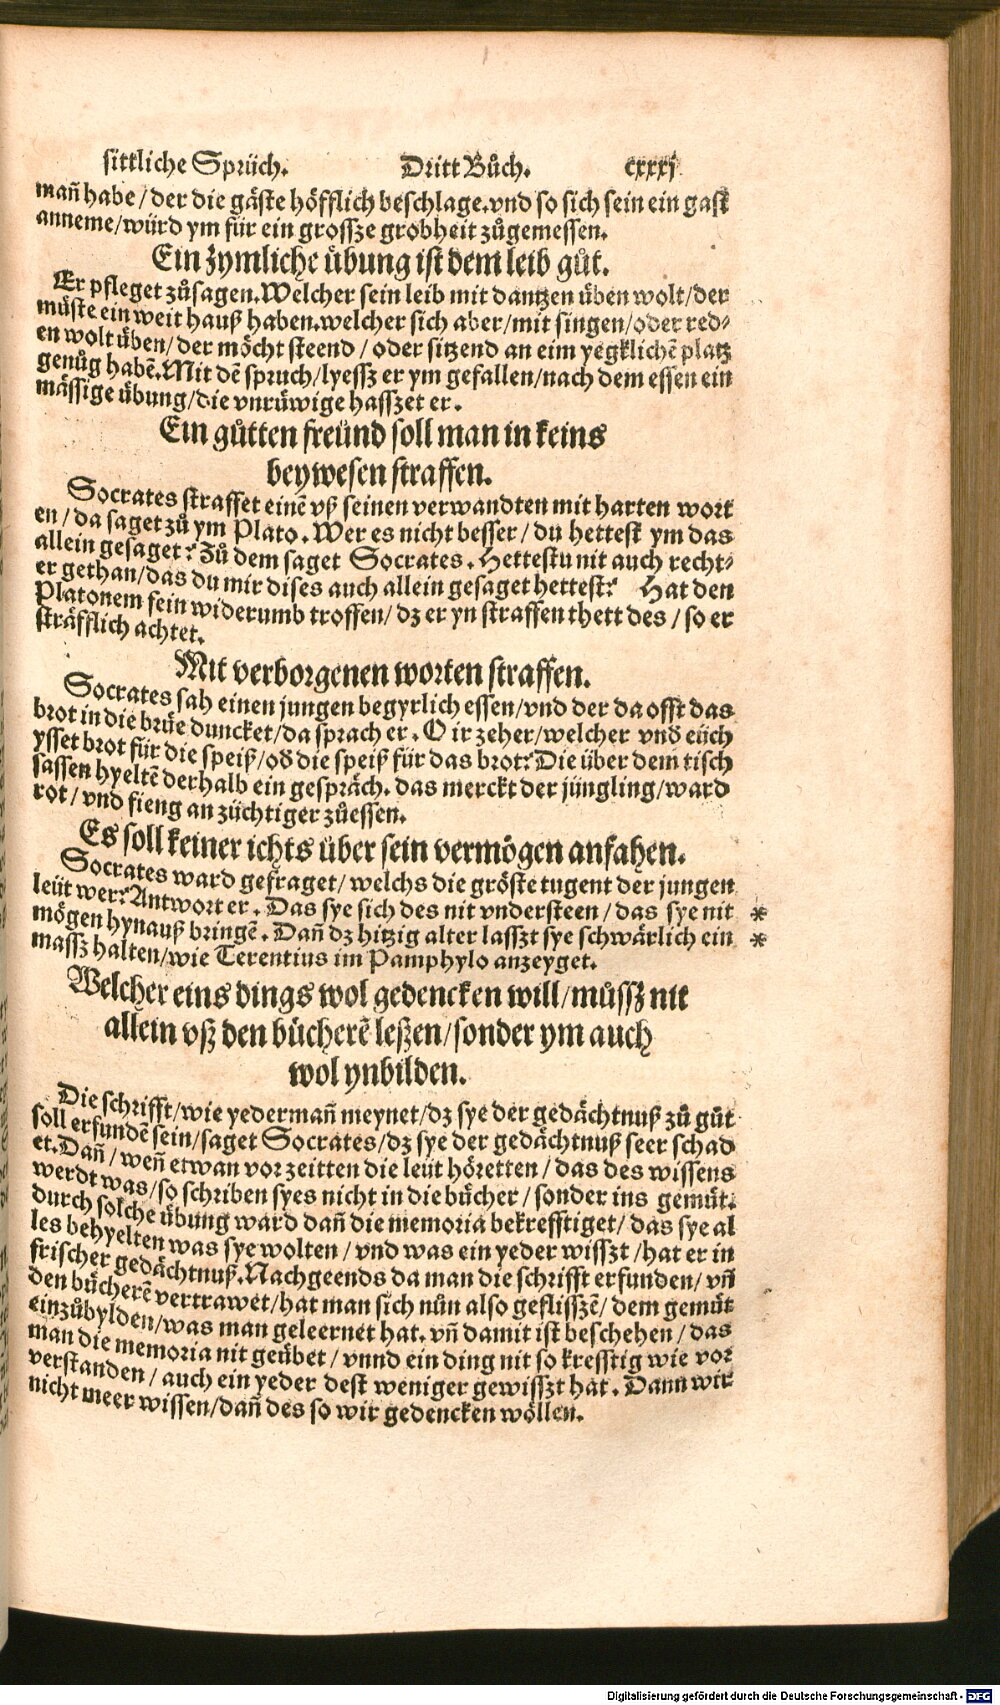 sittliche Sprüch. Dritt Bůch. cxxxj
mañ habe / der die gäste höfflich beschlage. vnd so sich sein ein gast
anneme / würd ym für ein grossze grobheit zůgemessen.
Ein zymliche übung ist dem leib gůt.
Er pfleget zůsagen. Welcher sein leib mit dantzen üben wolt / der
müste ein weit hauß haben. welcher sich aber / mit singen / oder red⸗
en wolt üben / der möcht steend / oder sitzend an eim yegklichē platz
genůg habē. Mit dē spruch / lyessz er ym gefallen / nach dem essen ein
mässige übung / die vnrüwige hasszet er.
Ein gůtten freünd soll man in keins
beywesen straffen.
Socrates straffet einē vß seinen verwandten mit harten wort
en / da saget zů ym Plato. Wer es nicht besser / du hettest ym das
allein gesaget? Zů dem saget Socrates. Hettestu nit auch recht⸗
er gethan / das du mir dises auch allein gesaget hettest? Hat den
Platonem fein widerumb troffen / dz er yn straffen thett des / so er
sträfflich achtet.
Mit verborgenen worten straffen.
Socrates sah einen jungen begyrlich essen / vnd der da offt das
brot in die brüe duncket / da sprach er. O ir zeher / welcher vnd eüch
ysset brot für die speiß / od die speiß für das brot? Die über dem tisch
sassen hyeltē derhalb ein gespräch. das merckt der jüngling / ward
rot / vnd fieng an züchtiger zůessen.
Es soll keiner ichts über sein vermögen anfahen.
Socrates ward gefraget / welchs die gröste tugent der jungen
leüt wer? Antwort er. Das sye sich des nit vndersteen / das sye nit *
mögen hynauß bringē. Dañ dz hitzig alter lasszt sye schwärlich ein *
massz halten / wie Terentius im Pamphylo anzeyget.
Welcher eins dings wol gedencken will / můssz nit
allein vß den bücherē leßen / sonder ym auch
wol ynbilden.
Die schrifft / wie yedermañ meynet / dz sye der gedächtnuß zů gůt
soll erfundē sein / saget Socrates / dz sye der gedächtnuß seer schad
et. Dañ / weñ etwan vor zeitten die leüt höretten / das des wissens
werdt was / so schriben syes nicht in die bücher / sonder ins gemüt.
durch solche übung ward dañ die memoria bekrefftiget / das sye al
les behyelten was sye wolten / vnd was ein yeder wisszt / hat er in
frischer gedächtnuß. Nachgeends da man die schrifft erfunden / vñ
den bücherē vertrawet / hat man sich nůn also geflisszē / dem gemüt
einzübylden / was man geleernet hat. vñ damit ist beschehen / das
man die memoria nit geübet / vnnd ein ding nit so krefftig wie vor
verstanden / auch ein yeder dest weniger gewisszt hat. Dann wir
nicht meer wissen / dañ des so wir gedencken wöllen.
Digitalisierung gefördert durch die Deutsche Forschungsgemeinschaft - DFG